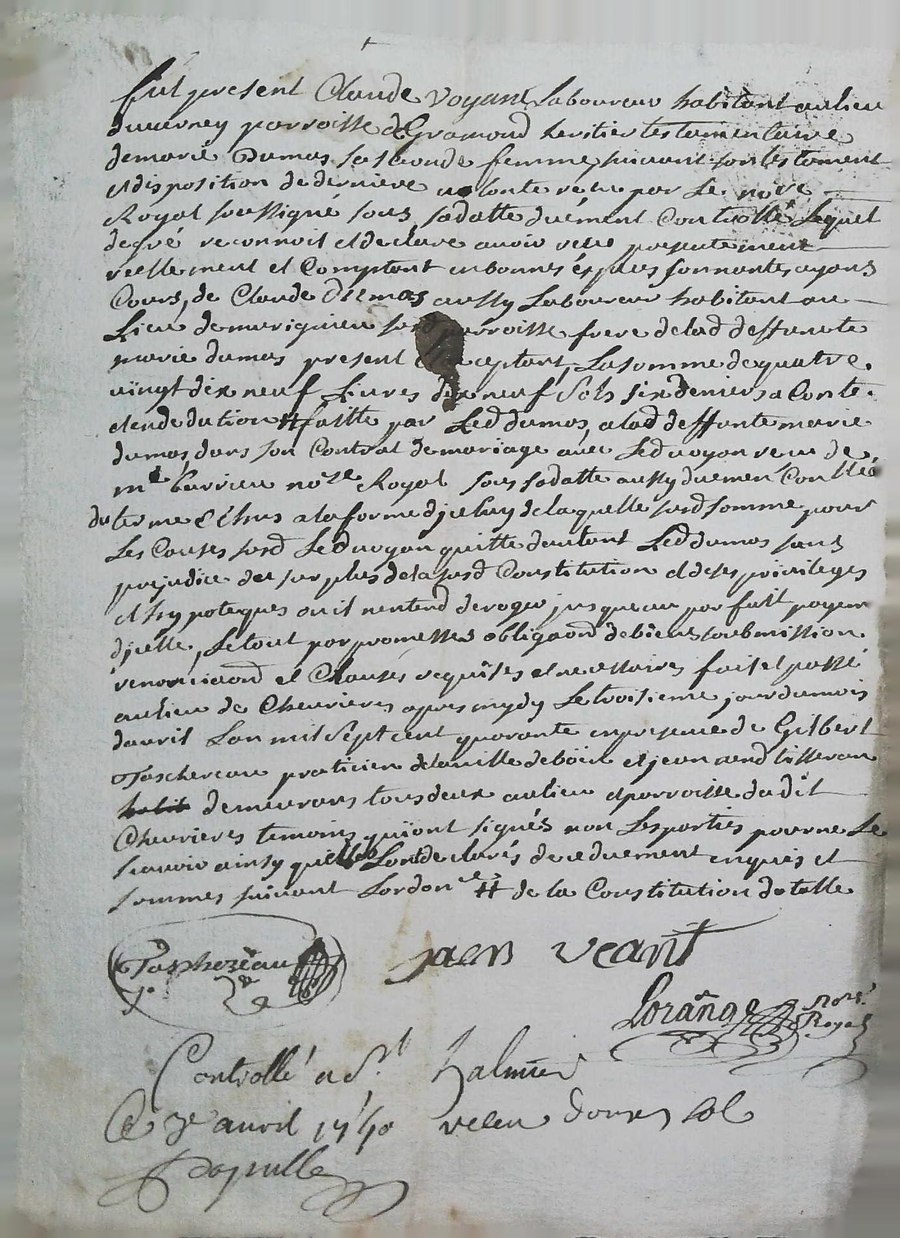 fut present Claude Voyant Laboureur habitant au lieu
du verney parroisse de Gramond heritier testamentaire
de marie Dumas sa seconde femme suivant son testament
et disposition de derniere volonte recu par le nore
Royal soussigné sous sa datte duément Controllé Lequel
de gré reconnoit et declare avoir receu presentement
reellement et Comptant en bonnes éspeces sonnantes ayans
Cours, de Claude Dumas aussy Laboureur habitant au
Lieu de marignieu susd parroisse frere de lad deffunte
marie dumas present acceptant, La somme de quatre
vingt dix neuf Livres dix neuf Sols six deniers a Conte
et en dedution # faitte par Led dumas, a lad deffunte marie
dumas dans son Contrat de mariage avec Led voyan receu de
me nore Royal sous sa datte aussy duemen Contllé
du terme Echus a la forme d'jceluy de laquelle susd somme pour
Les Causes susd Led voyan quitte d'autant Led dumas sans
prejudice du surplus de la susd Constitution et de ses privileges
et hypoteques ou il n'entend deroger jusqueau parfait payem
d'jcelle, Le tout par promesses obligaond de biens soubmission
renonciaond et Clauses requises et necessaires fait et passé
au lieu de Chevrieres apres mydy Le troisieme jour du mois
d'avril Lan mil Sept cent quarante en presence de Gilbert
Taschereau praticien de la ville de boën et jean tisseran
demeurans tous deux au lieu et parroisse du dit
Chevrieres temoins qui ont signés non Les parties pour ne Le
scavoir ainsy quelles L'ont declarés de ce duement enquis et
sommes suivant Lordonce # de la Constitution dotalle
Taschereau
jaen veant
Lorange Nore
Royal
Controllé a St Galmier
Le 7e avril 1740 receu douze sol